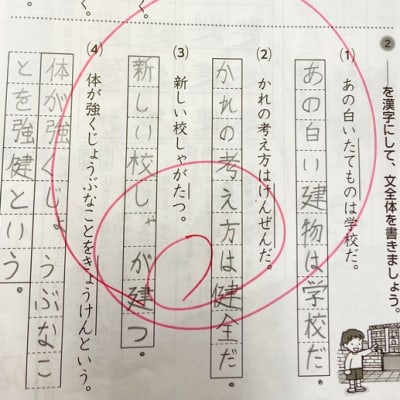 2 ――を漢字にして、文全体を書きましょう。
(1) あの白いたてものは学校だ。
あの白い建物は学校だ。
(2) かれの考え方はけんぜんだ。
かれの考え方は健全だ。
(3) 新しい校しゃがたつ。
新しい校しゃが建つ。
(4) 体が強くじょうぶなことをきょうけんという。
体が強くじょうぶなこ
とを強健という。